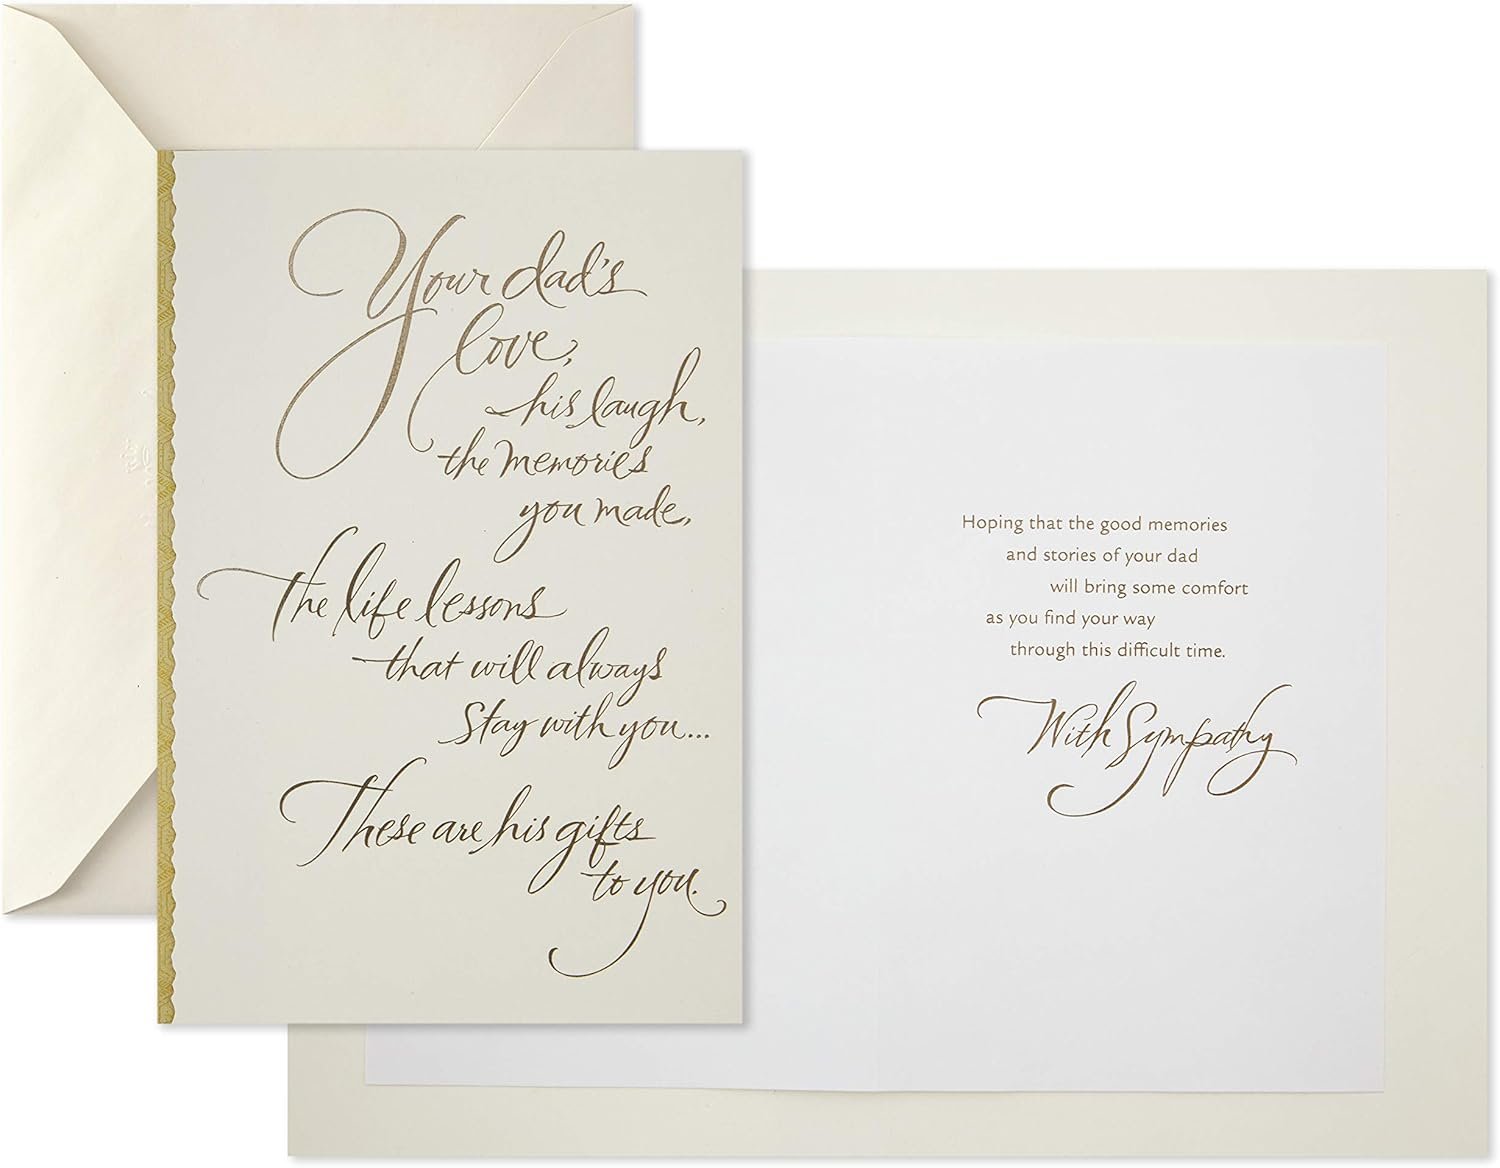 Your dad's
love,
his laugh,
the memories
you made,
The life lessons
that will always
stay with you...
These are his gifts
to you.
Hoping that the good memories
and stories of your dad
will bring some comfort
as you find your way
through this difficult time.
With Sympathy